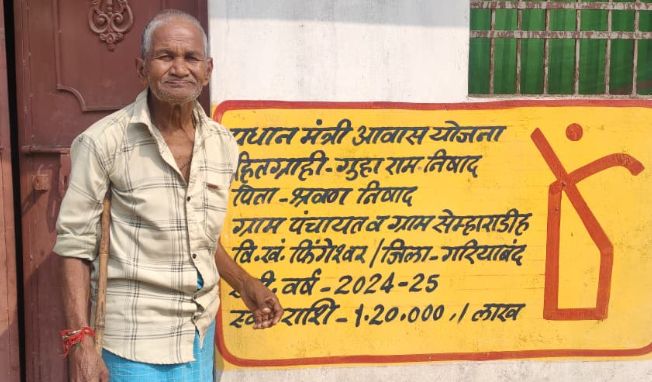 प्रधान मंत्री आवास योजना
हितग्राही - गुहा राम निषाद
पिता - श्रवण निषाद
ग्राम पंचायत व ग्राम सेम्हाराडीह
वि.खं. फिंगेश्वर / जिला - गरियाबंद
वर्ष - 2024-25
राशि - 1.20.000./ लाख